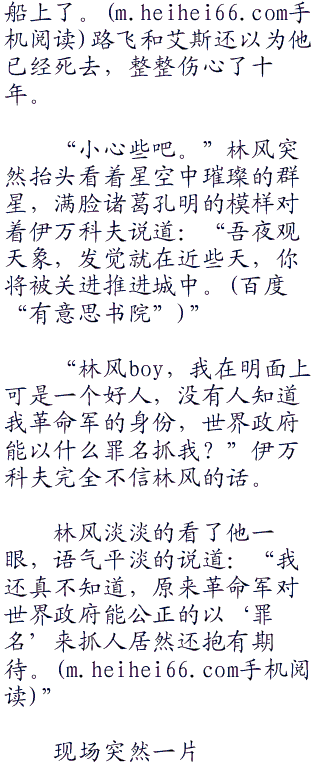 船上了。(m.heihei66.com手
机阅读)路飞和艾斯还以为他
已经死去，整整伤心了十
年。
“小心些吧。”林风突
然抬头看着星空中璀璨的群
星，满脸诸葛孔明的模样对
着伊万科夫说道：“吾夜观
天象，发觉就在近些天，你
将被关进推进城中。(百度
“有意思书院”)”
“林风boy，我在明面上
可是一个好人，没有人知道
我革命军的身份，世界政府
能以什么罪名抓我？”伊万
科夫完全不信林风的话。
林风淡淡的看了他一
眼，语气平淡的说道：“我
还真不知道，原来革命军对
世界政府能公正的以‘罪
名’来抓人居然还抱有期
待。(m.heihei66.com手机阅
读)”
现场突然一片